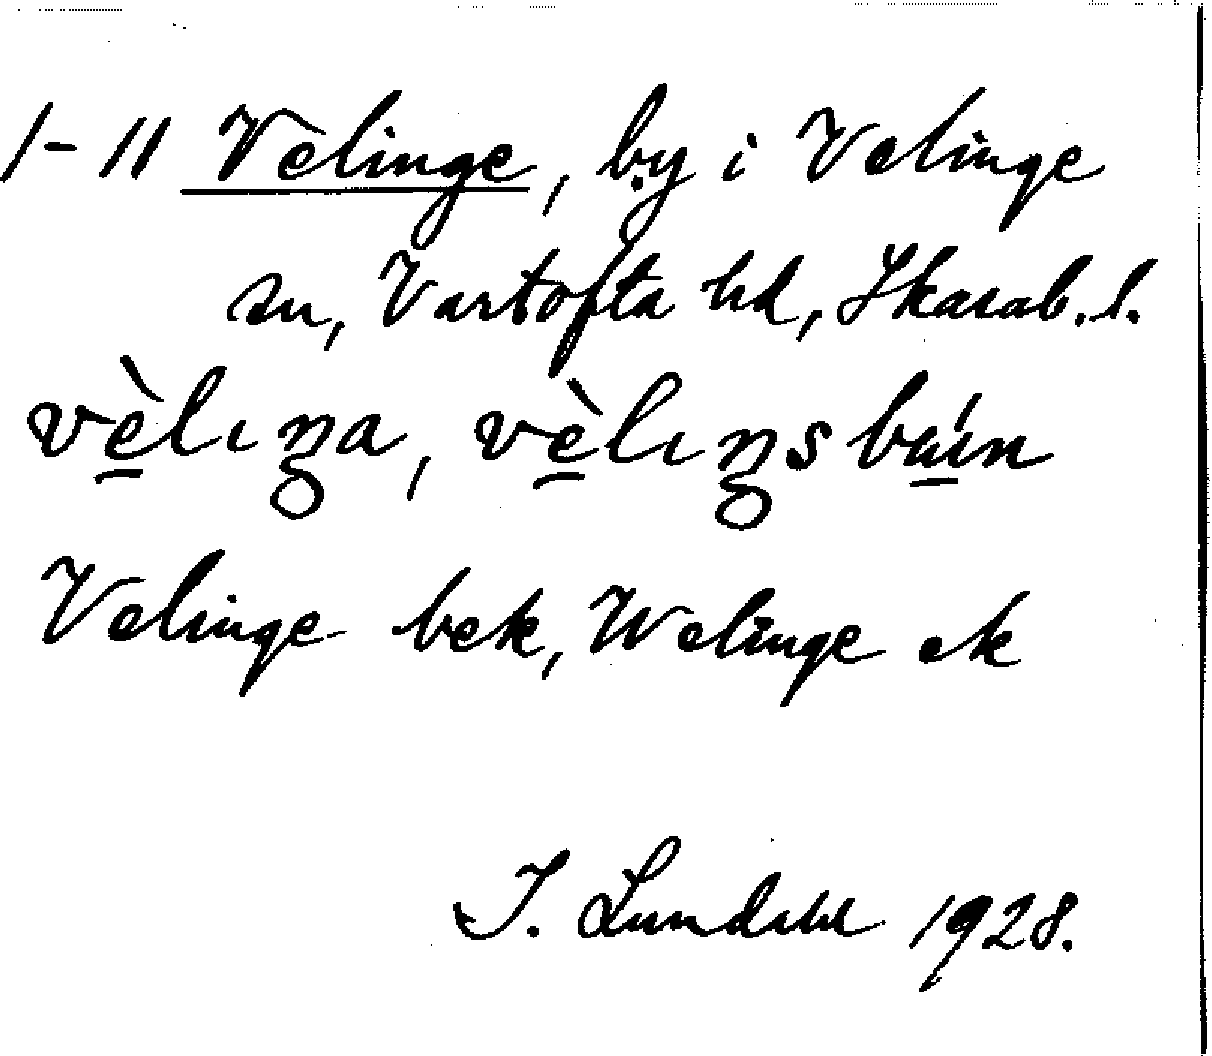 1-11 Velinge, by i Velinge
sn, Vartofta hd, Skarab. l.
vèlıŋa, vèlıŋs
Velinge bek, Welinge ek
I. Lundahl 1928.